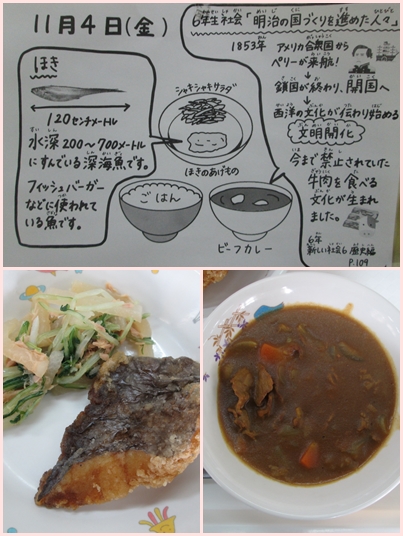 11月4日(金)
ほき
120センチメートル
水深200~700メートル
にすんでいる深海魚です。
フィッシュバーガー
などに使われて
いる魚です。
シャキシャキサラダ
ほきのあげもの
ごはん
ビーフカレー
6年生社会「明治の国づくりを進めた人々」
1853年 アメリカ合衆国から
ペリーが来航!
↓
鎖国が終わり、開国へ
↓
西洋の文化が伝わり始める
文明開化
今まで禁止されていた
牛肉を食べる
文化が生まれ
ました。
6年
新しい社会6 歴史編
P.109